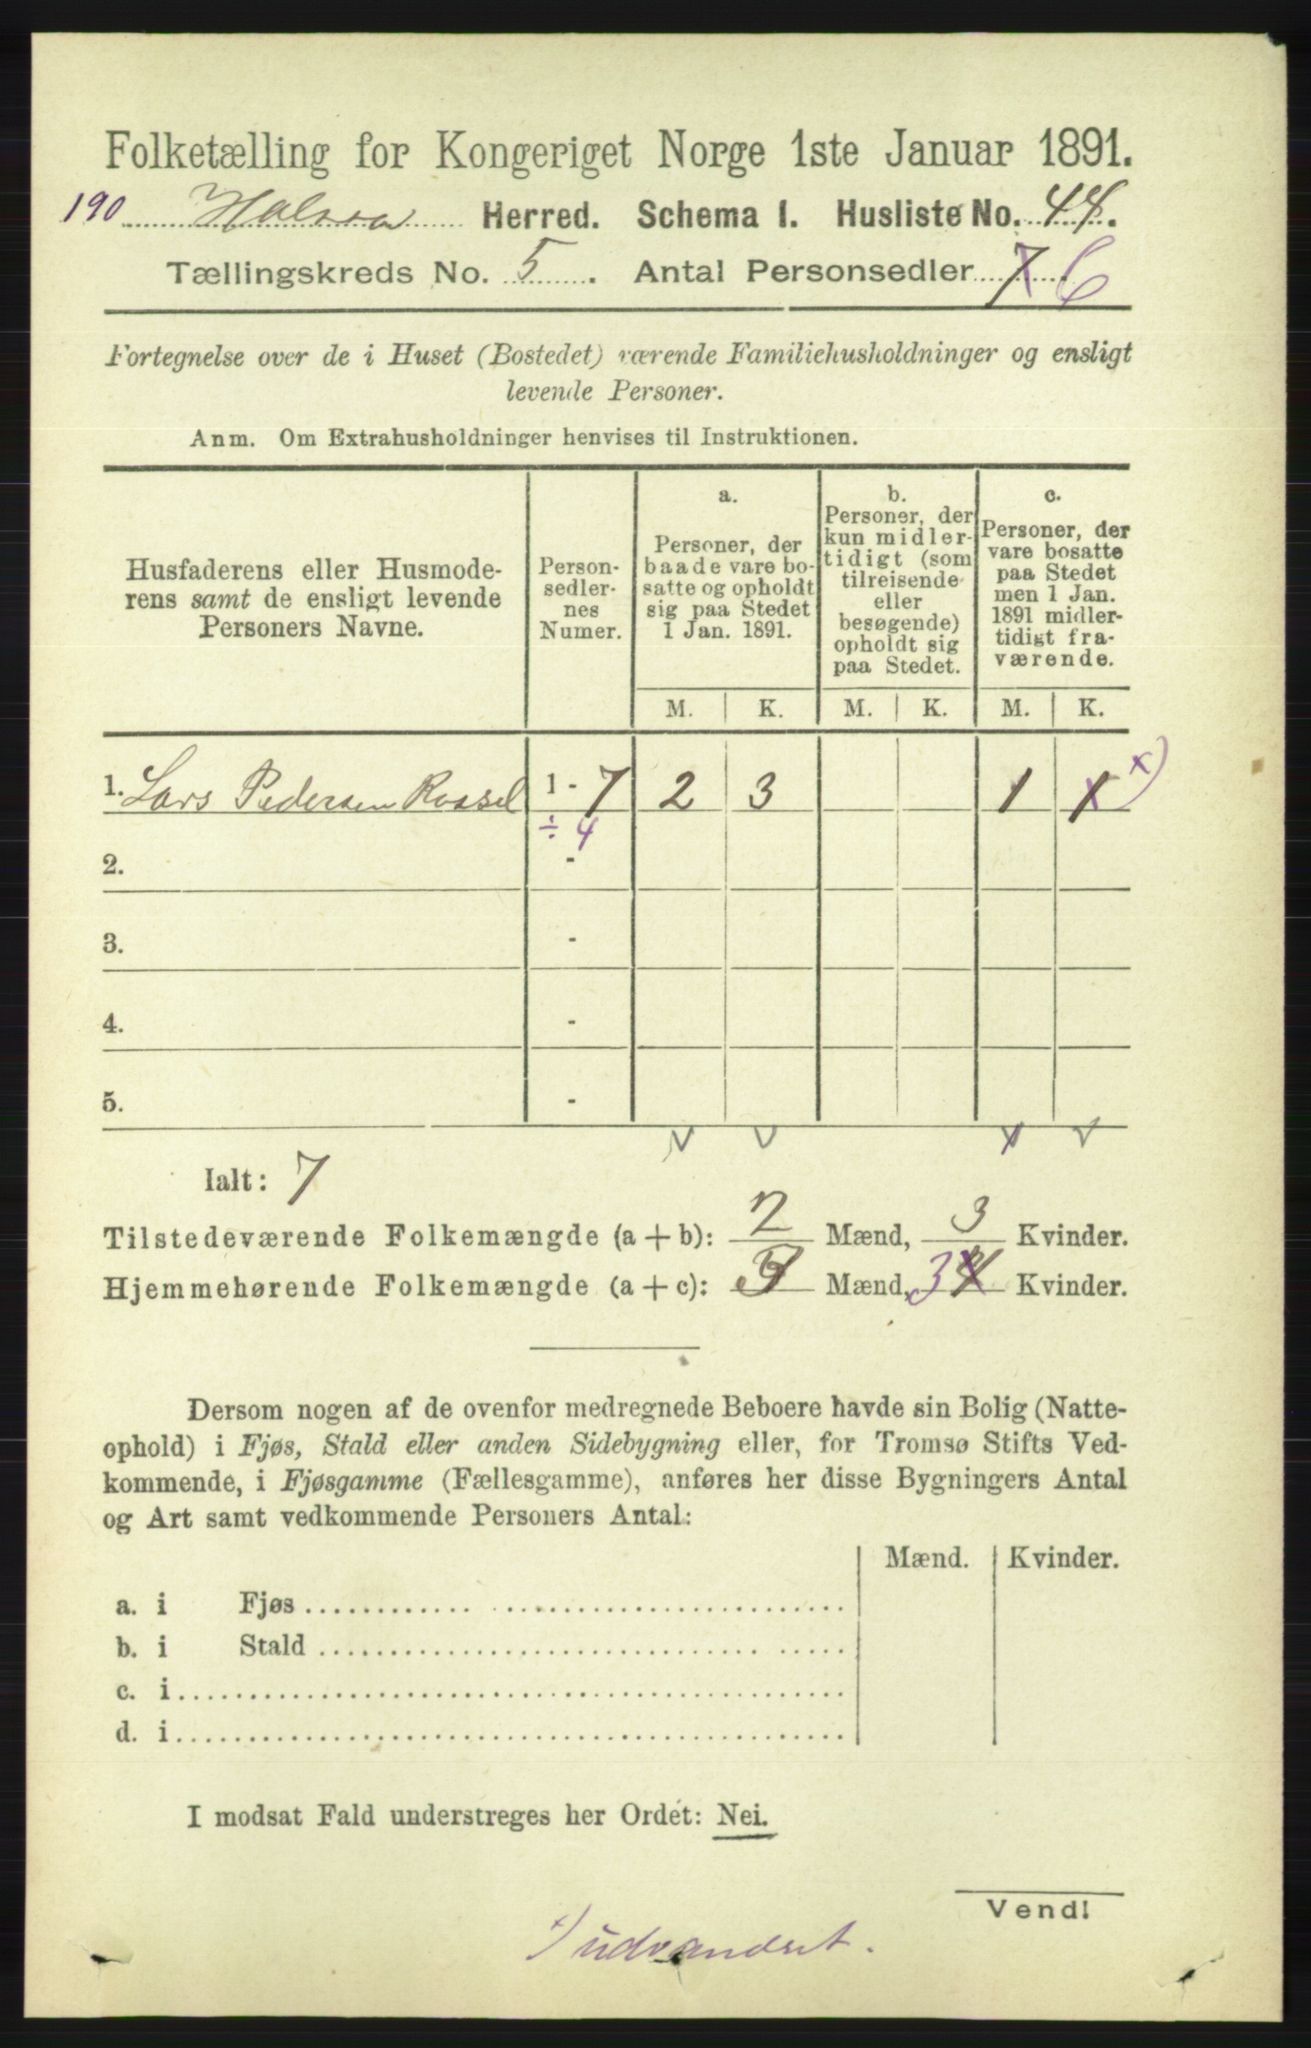 Folketælling for Kongeriget Norge 1ste Januar 1891.
190 Halsaa Herred. Schema I. Husliste No. 44.
Tællingskreds No. 5. Antal Personsedler 7 6
Fortegnelse over de i Huset (Bostedet) værende Familiehusholdninger og ensligt
levende Personer.
Anm. Om Extrahusholdninger henvises til Instruktionen.
Husfaderens eller Husmode-
rens samt de ensligt levende
Personers Navne.
Person-
sedler-
nes
Numer.
a.
Personer, der
baade vare bo-
satte og opholdt
sig paa Stedet
1 Jan. 1891.
b.
Personer, der
kun midler-
tidigt (som
tilreisende
eller
besøgende)
opholdt sig
paa Stedet.
c.
Personer, der
vare bosatte
paa Stedet
men 1 Jan.
1891 midler-
tidigt fra-
værende.
M. K. M. K. M. K.
1. Lars Pedersen 1 - 7 2 3 1 1 x)
÷ 4
2. -
3. -
4. -
5. -
Ialt: 7
Tilstedeværende Folkemængde (a + b): 2 Mænd, 3 Kvinder.
Hjemmehørende Folkemængde (a + c): 3 Mænd, 3 4 Kvinder.
Dersom nogen af de ovenfor medregnede Beboere havde sin Bolig (Natte-
ophold) i Fjøs, Stald eller anden Sidebygning eller, for Tromsø Stifts Ved-
kommende, i Fjøsgamme (Fællesgamme), anføres her disse Bygningers Antal
og Art samt vedkommende Personers Antal:
Mænd. Kvinder.
a. i Fjøs
b. i Stald
c. i
d. i
I modsat Fald understreges her Ordet: Nei.
Vend!
x) udvandret.